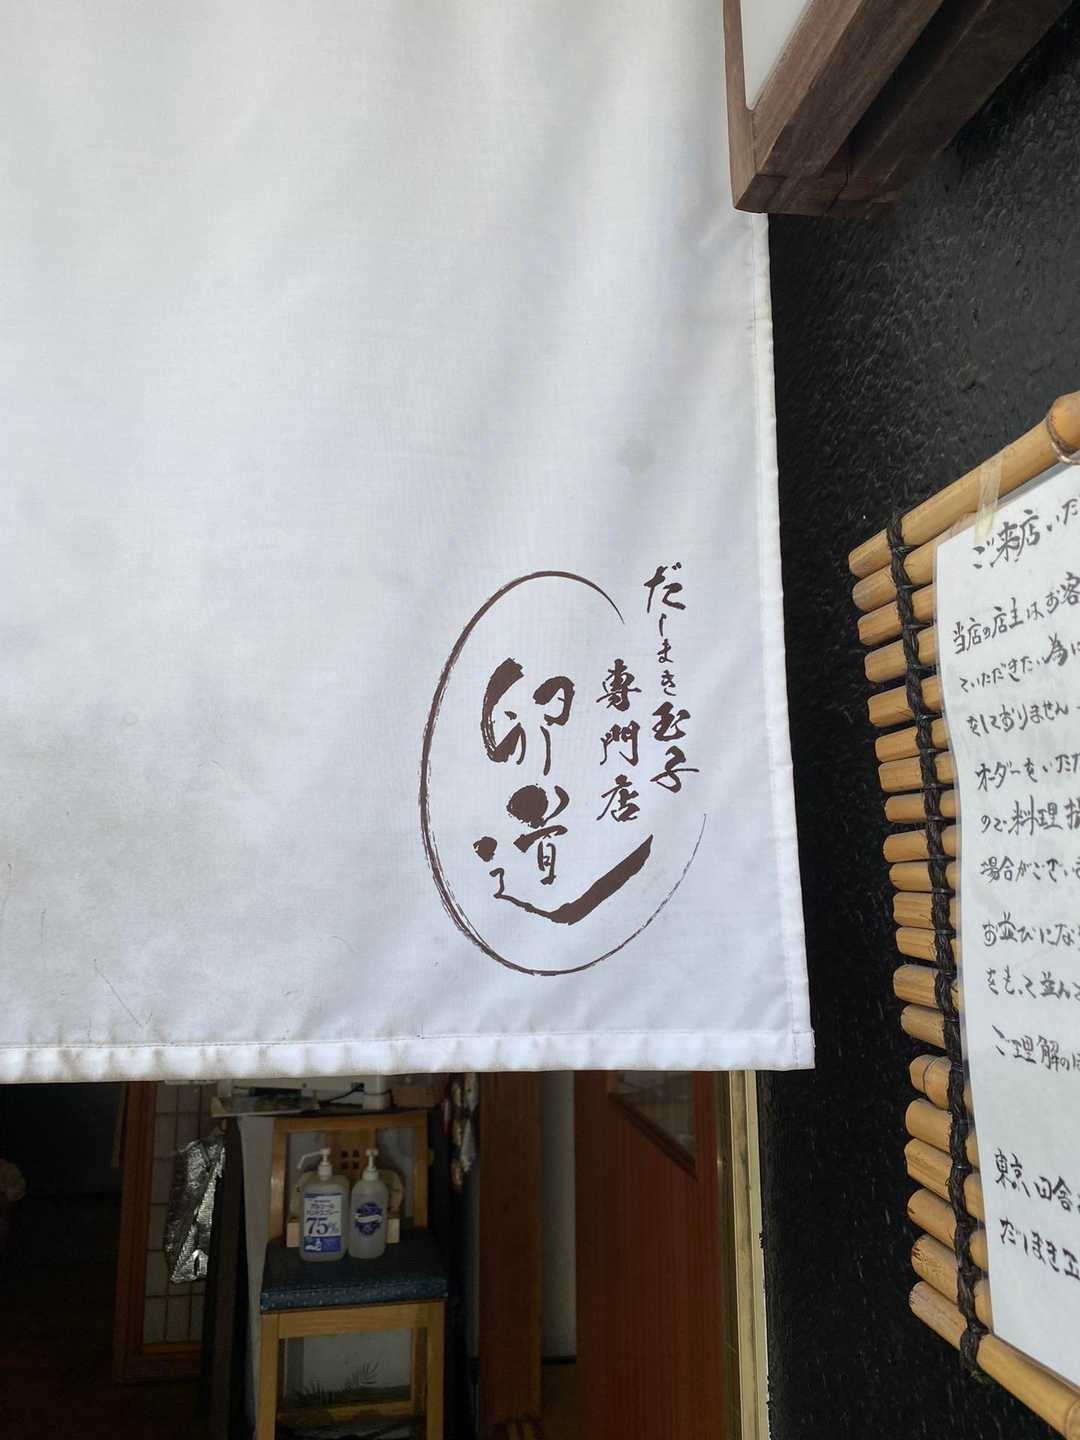 だしまき玉子
専門店
卵道
ご来店いた
当店の店主はお客
ていただきたい為に
をしておりません
オーダーをいただ
ので料理提
場合がござい
お並びにな
をもって並ん
ご理解の
東京、田舎
だしまき玉
アルコール
ハンドスプレー
75%